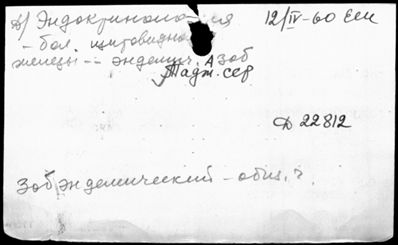 д) Эндокринология 12/IV-60 Еси
- бол. щитовидной
железы -- эндемич. зоб
Тадж. сер
Д 22812
Зоб эндемический - общ. ч.